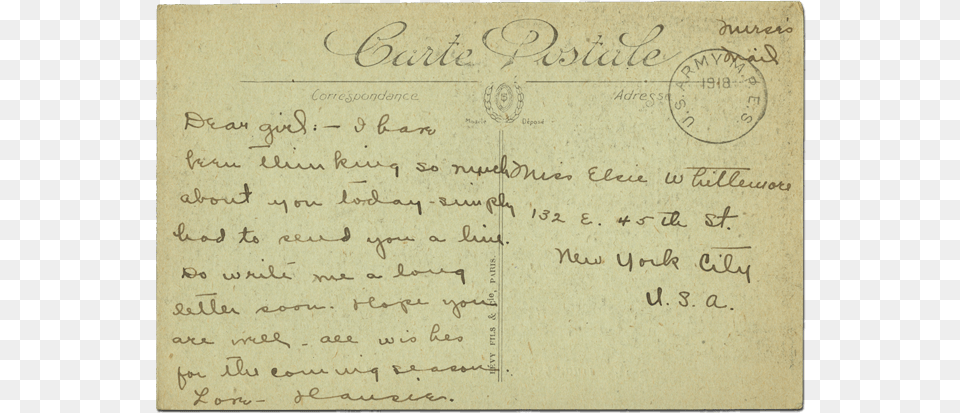 Nurse's
Mail
Carte Postale
U.S. ARMY M.P.E.S.
1918
Correspondance
Adresse
Musée Déposé
Dear girl:- I have
been thinking so much
about you today - simply
had to send you a line.
Do write me a long
letter soon. Hope you
are well - all wishes
for the coming season.
Love - Hausie.
Miss Elsie Whittemore
132 E. 45th St.
New York City
U.S.A.
LEVY FILS & Cie, PARIS.